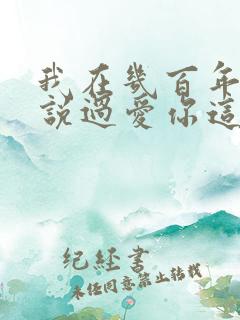 我在幾百年
說過愛你這
紀經書
未经同意禁止转载